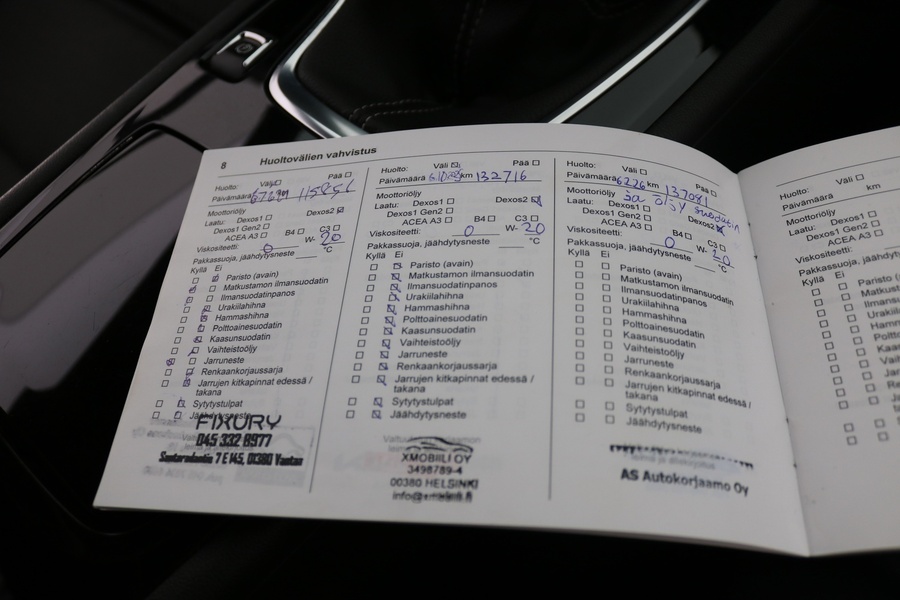 8 Huoltovälien vahvistus
Huolto: Väli Pää
Päivämäärä km 115856
Moottoriöljy
Laatu: Dexos1 Dexos2
Dexos1 Gen2
ACEA A3 B4 C3
Viskositeetti: 0 W- 20
Pakkassuoja, jäähdytysneste °C
Kyllä Ei
Paristo (avain)
Matkustamon ilmansuodatin
Ilmansuodatinpanos
Urakiilahihna
Hammashihna
Polttoainesuodatin
Kaasunsuodatin
Vaihteistoöljy
Jarruneste
Renkaankorjaussarja
Jarrujen kitkapinnat edessä /
takana
Sytytystulpat
Jäähdytysneste
FIXURY
045 332 8977
Santaradantie 7 E 145, 01380 Vantaa
Huolto: Väli Pää
Päivämäärä km 132716
Moottoriöljy
Laatu: Dexos1 Dexos2
Dexos1 Gen2
ACEA A3 B4 C3
Viskositeetti: 0 W- 20
Pakkassuoja, jäähdytysneste °C
Kyllä Ei
Paristo (avain)
Matkustamon ilmansuodatin
Ilmansuodatinpanos
Urakiilahihna
Hammashihna
Polttoainesuodatin
Kaasunsuodatin
Vaihteistoöljy
Jarruneste
Renkaankorjaussarja
Jarrujen kitkapinnat edessä /
takana
Sytytystulpat
Jäähdytysneste
XMOBIILI OY
3498789-4
00380 HELSINKI
info@xmobiili.fi
Huolto: Väli Pää
Päivämäärä km 137081
Moottoriöljy
Laatu: Dexos1 Dexos2
Dexos1 Gen2
ACEA A3 B4 C3
Viskositeetti: 0 W- 20
Pakkassuoja, jäähdytysneste °C
Kyllä Ei
Paristo (avain)
Matkustamon ilmansuodatin
Ilmansuodatinpanos
Urakiilahihna
Hammashihna
Polttoainesuodatin
Kaasunsuodatin
Vaihteistoöljy
Jarruneste
Renkaankorjaussarja
Jarrujen kitkapinnat edessä /
takana
Sytytystulpat
Jäähdytysneste
AS Autokorjaamo Oy
Huolto: Väli
Päivämäärä km
Moottoriöljy
Laatu: Dexos1
Dexos1 Gen2
ACEA A3
Viskositeetti:
Pakkassuoja,
Kyllä Ei